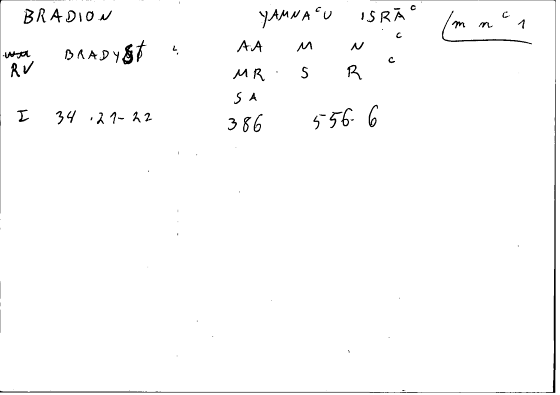 BRADION YAMNAᶜU ISRĀᶜ m n ᶜ 1
RV BRADYSt AA M N ᶜ
MR S R ᶜ
SA
I 34 .21-22 386 556.6